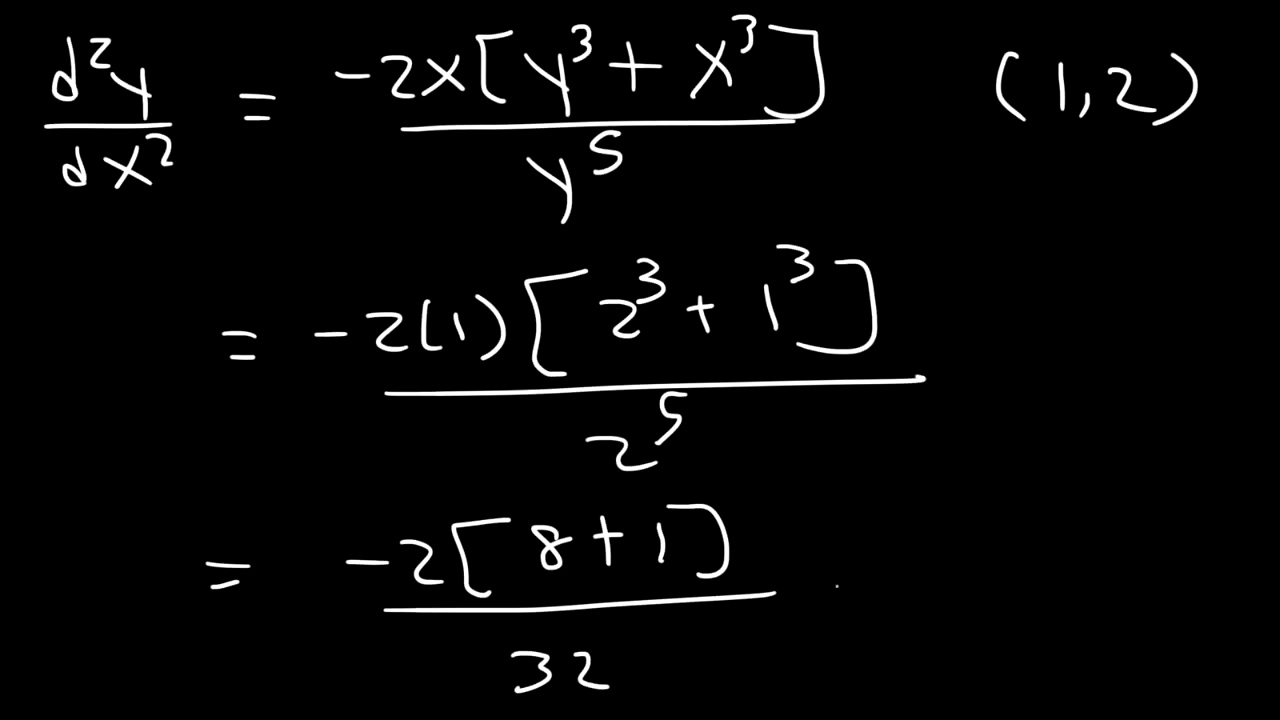 d²y/dx² = -2x[y³ + x³]/y⁵ (1,2)
= -2(1)[2³ + 1³]/2⁵
= -2[8+1]/32